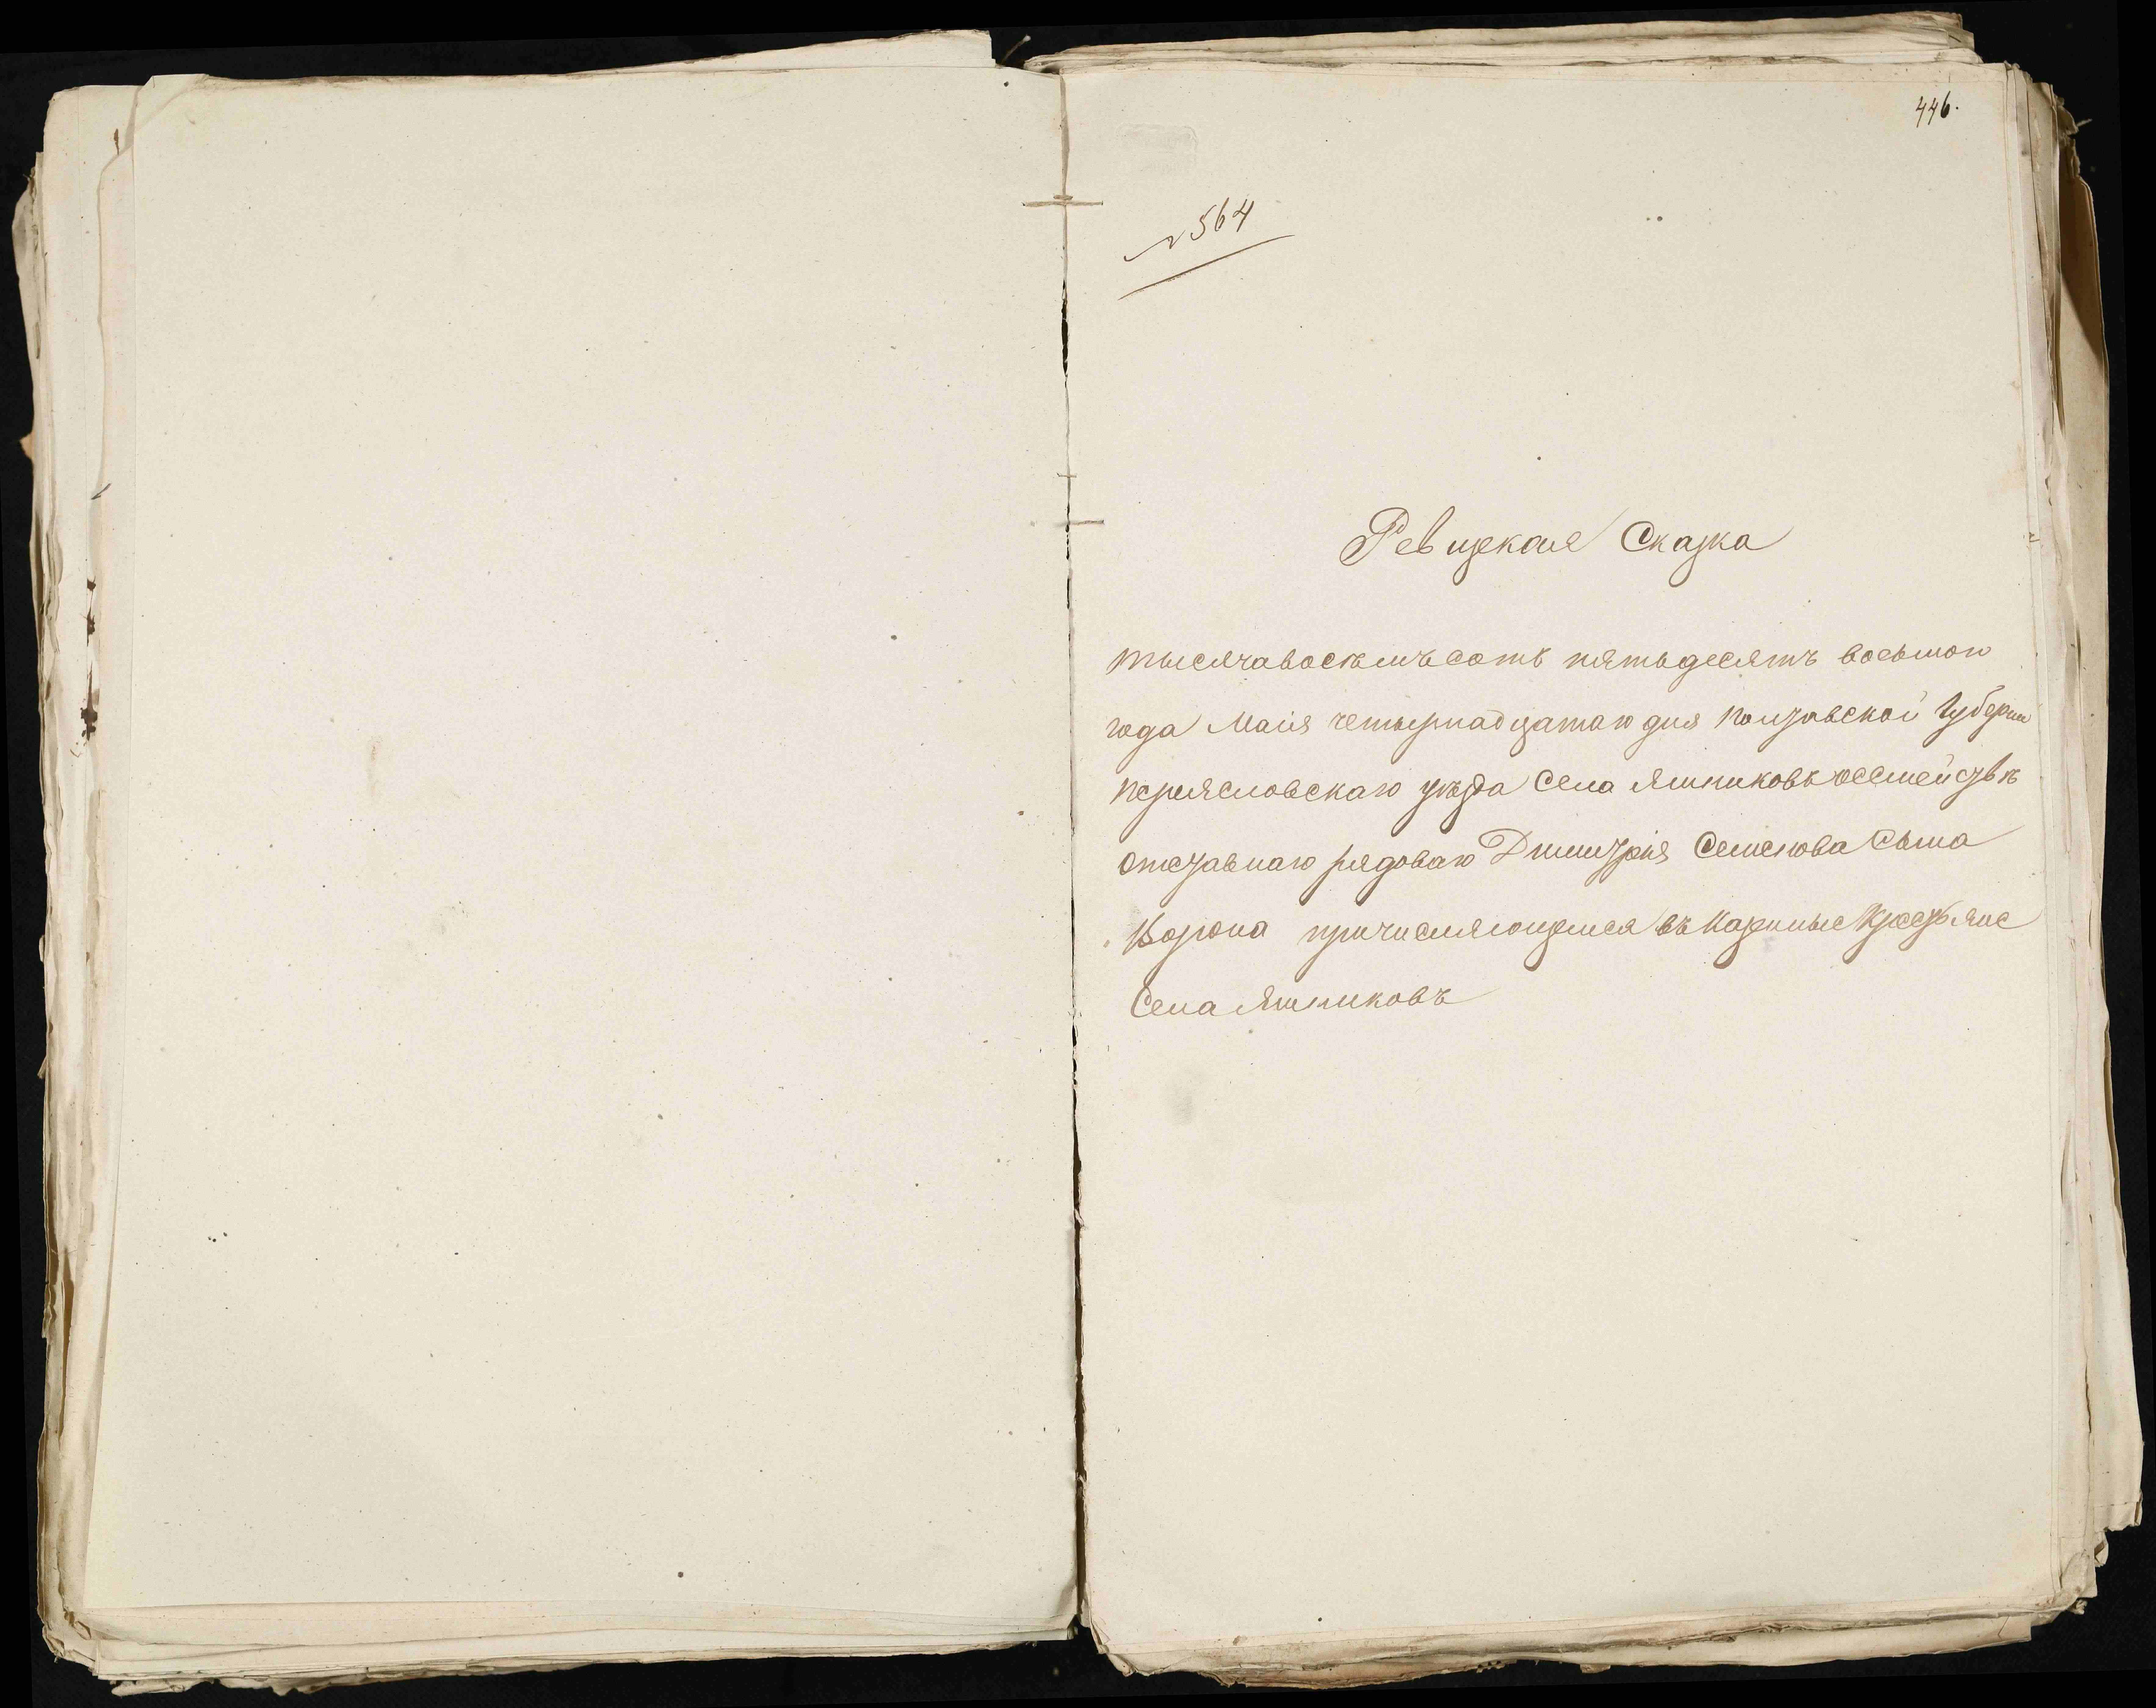 446.
№ 564
Ревизская Сказка
тысяча восѣмъсотъ пятьдесятъ восьмого
года Маія четырнадцатаго дня Полтавской Губерніи
Переясловскаго уѣзда Села Яшниковъ осемействѣ
отставнаго рядоваго Димитрія Семенова Сына
Ворона причисляющемся въ Казенные Крестьяне
Села Яшниковъ